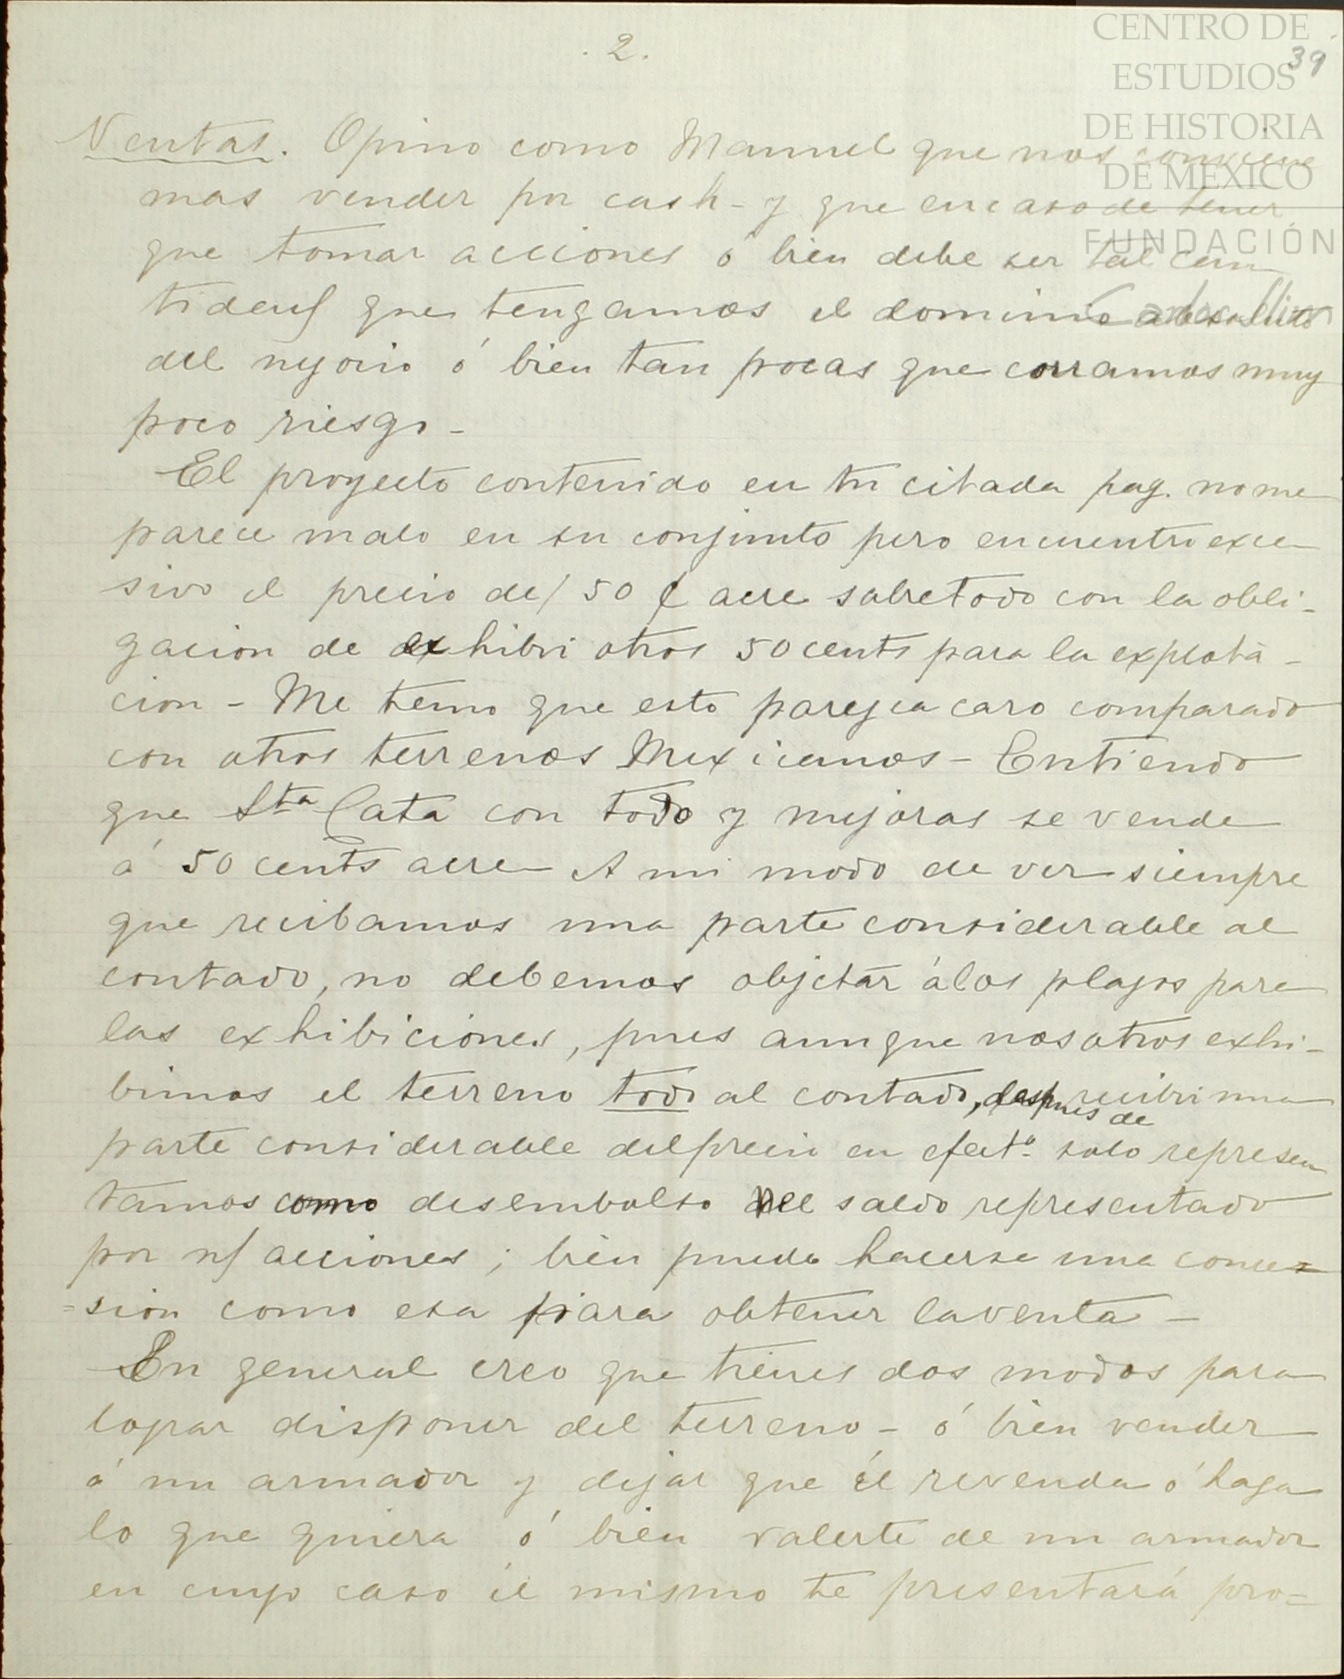 . 2 .
39
CENTRO DE
ESTUDIOS
DE HISTORIA
DE MÉXICO
FUNDACIÓN
Carlos Slim
Ventas. Opino como Manuel que nos conviene
mas vender por cash - y que en caso de tener
que tomar acciones ó bien debe ser tal can
tidad que tengamos el dominio absoluto
del negocio ó bien tan pocas que corramos muy
poco riesgo -
El proyecto contenido en tu citada pag. no me
parece malo en su conjunto pero encuentro exce
sivo el precio de 50 ¢ acre sobretodo con la obli-
gacion de exhibir otros 50 cents para la explota-
cion - Me temo que esto parezca caro comparado
con otros terrenos Mexicanos - Entiendo
que Sta Cata con todo y mejoras se vende
á 50 cents acre A mi modo de ver siempre
que recibamos una parte considerable al
contado, no debemos objetar á los plazos para
las exhibiciones, pues aunque nosotros exhi-
bimos el terreno todo al contado, despues de recibir una
parte considerable del precio en efecto. solo represen
tamos como desembolso el saldo representado
por n/ acciones ; bien puede hacerse una conce=
=sion como esa para obtener la venta -
En general creo que tienes dos modos para
lograr disponer del terreno - ó bien vender
á un armador y dejar que él revenda ó haga
lo que quiera ó bien valerte de un armador
en cuyo caso él mismo te presentará pro=